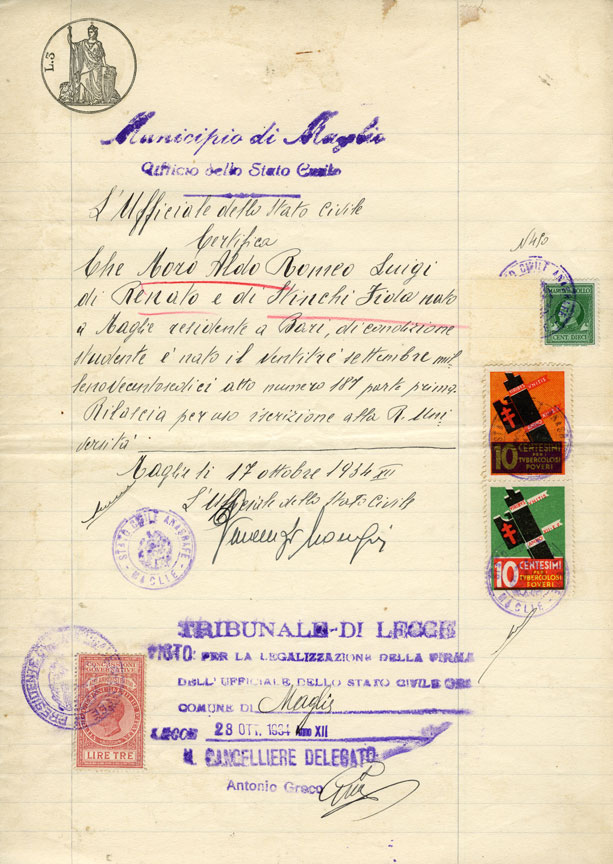 L.3
Municipio di Maglie
Ufficio dello Stato Civile
L'Ufficiale dello Stato Civile
Certifica
Che Moro Aldo Romeo Luigi
di Renato e di Stinchi Fida nato
a Maglie residente a Bari, di condizione
studente è nato il ventitrè settembre mil
lenovecentosedici atto numero 187 parte prima.
Rilascia per uso iscrizione alla R. Uni
versità
Maglie li 17 ottobre 1934 XII
L'Ufficiale dello Stato Civile
N 450
CENT. DIECI
10 CENTESIMI
PER I
TVBERCOLOSI
POVERI
10 CENTESIMI
PER I
TVBERCOLOSI
POVERI
STATO CIVILE ANAGRAFE
MAGLIE
TRIBUNALE DI LECCE
VISTO: PER LA LEGALIZZAZIONE DELLA FIRMA
DELL'UFFICIALE DELLO STATO CIVILE DEL
COMUNE DI Maglie
LECCE 28 OTT. 1934 Anno XII
IL CANCELLIERE DELEGATO
Antonio Greco
PRESIDENTE
LIRE TRE